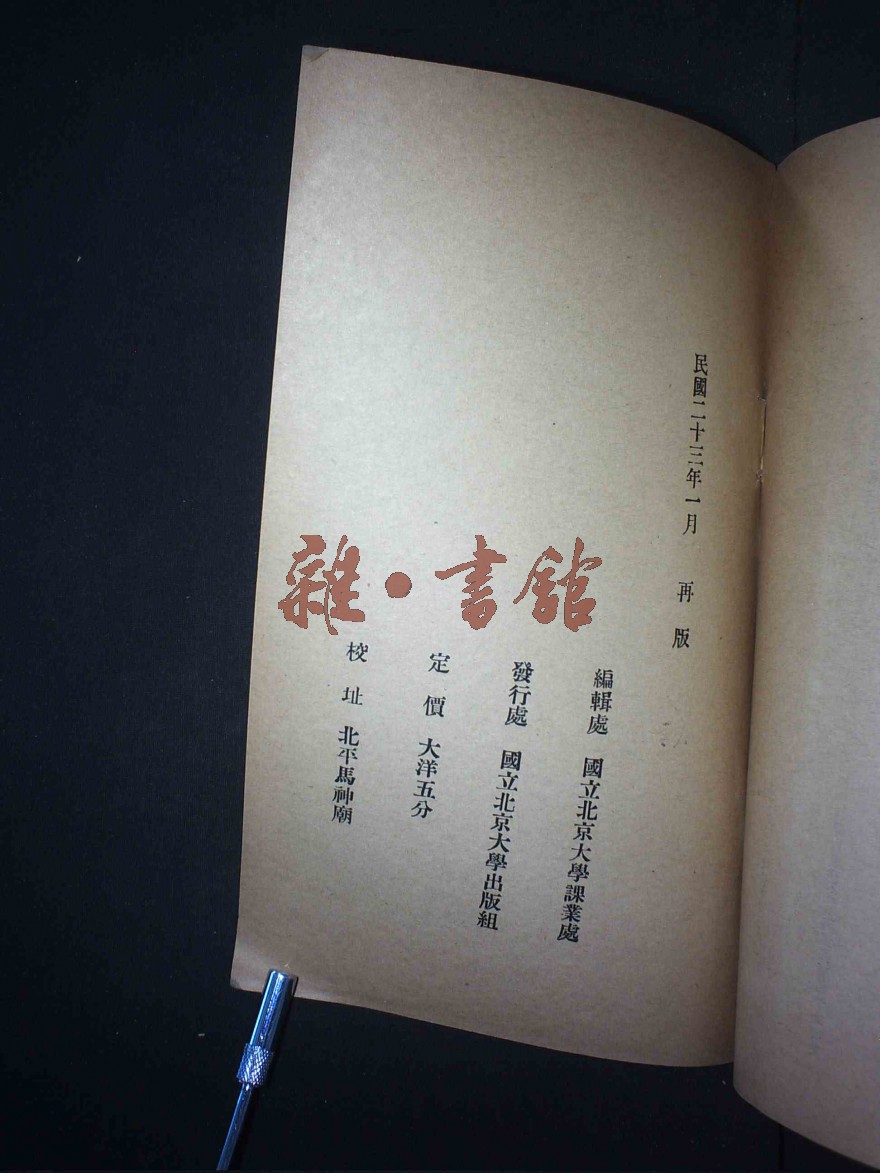 民國二十三年一月 再版
編輯處 國立北京大學課業處
發行處 國立北京大學出版組
定價 大洋五分
校址 北平馬神廟
雜·書館